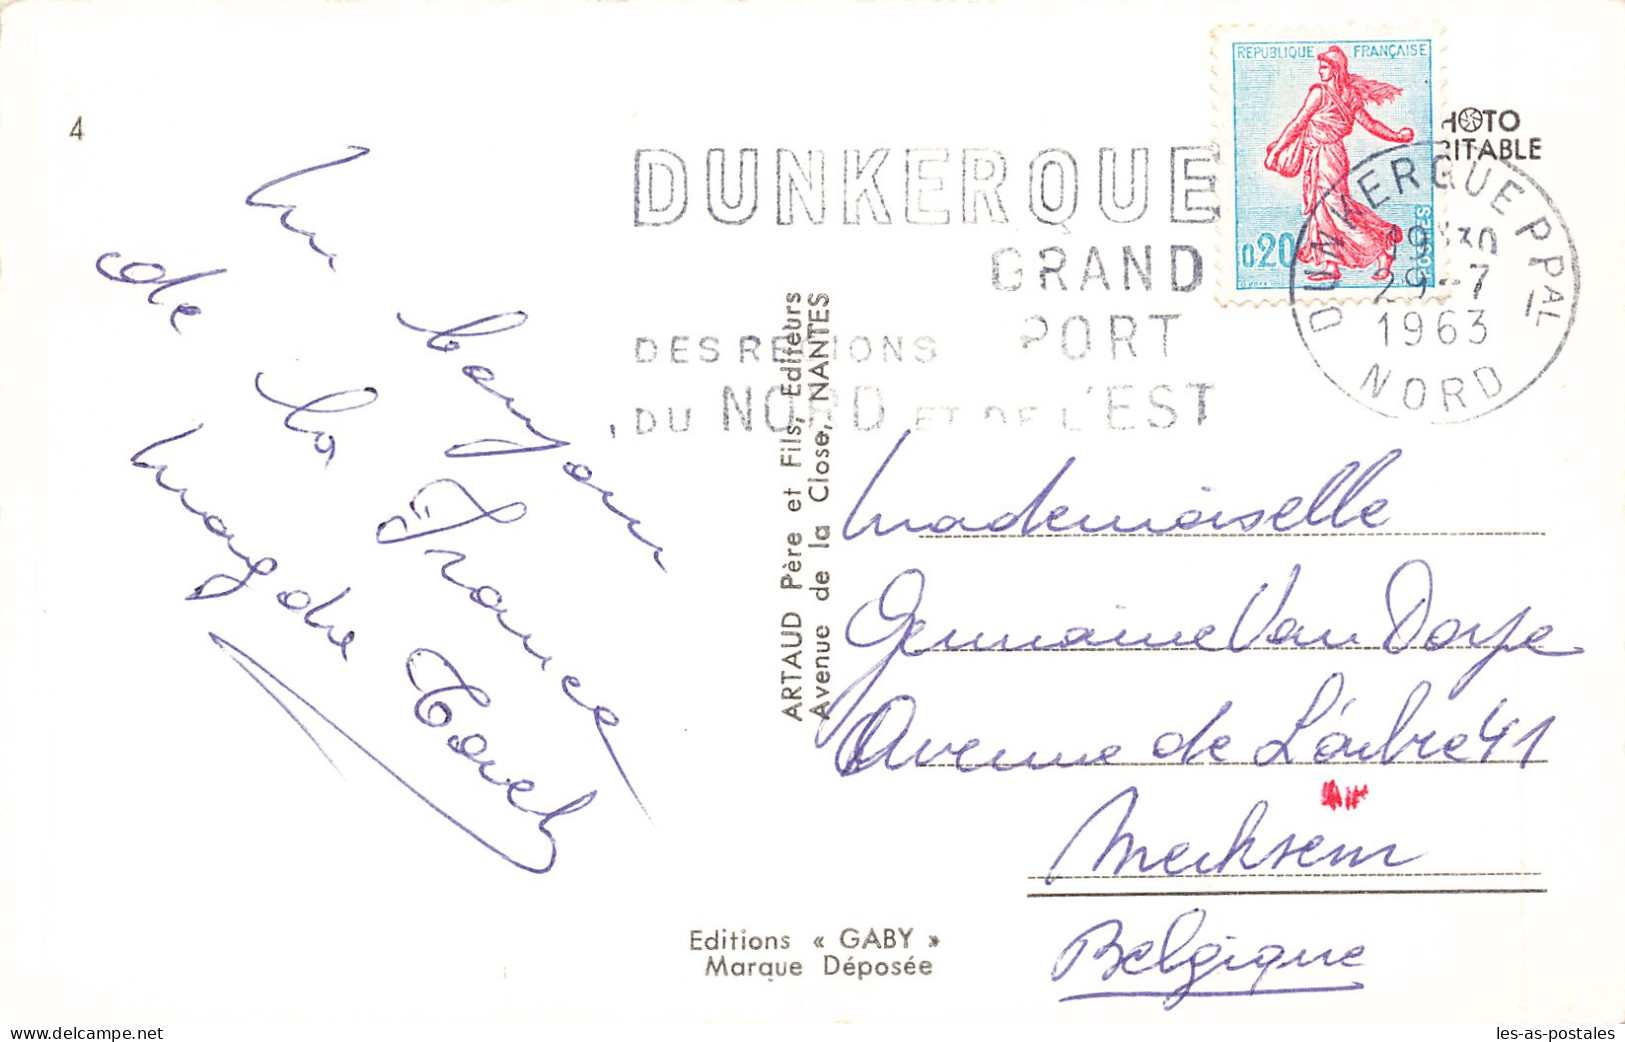 4
Un bonjour
de la France
Magda Coreels
DUNKERQUE
GRAND
PORT
DES REGIONS
DU NORD ET DE L'EST
REPUBLIQUE FRANÇAISE
0,20
POSTES
HOTO
RITABLE
DUNKERQUE PPAL
19H30
29-7
1963
NORD
ARTAUD Père et Fils, Editeurs
Avenue de la Close, NANTES
Mademoiselle
Germaine Van Dorpe
Avenue de L'arbre 41
Merksem
Belgique
Editions « GABY »
Marque Déposée
delcampe.net
les-as-postales